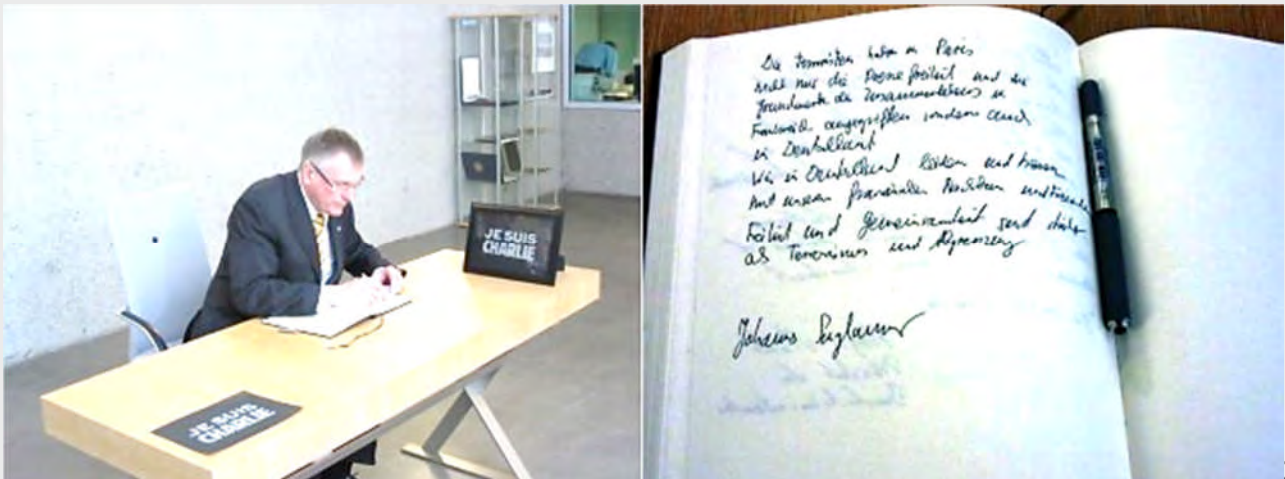 JE SUIS
CHARLIE
JE SUIS
CHARLIE
Die Terroristen haben in Paris
nicht nur die Pressefreiheit und die
Grundwerte des Zusammenlebens in
Frankreich angegriffen sondern auch
in Deutschland
Wir in Deutschland leiden und trauern
mit unseren französischen und
Freiheit und Gemeinsamkeit sind stärker
als Terrorismus und
Johannes